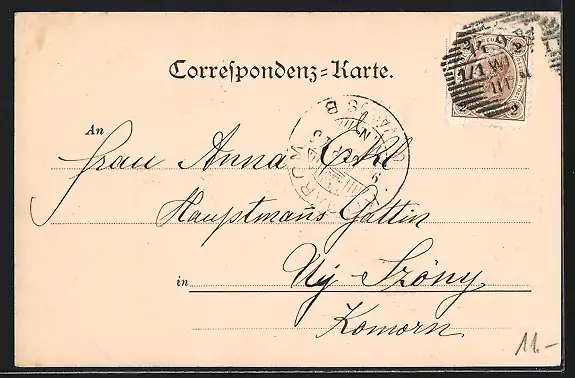 2 2
1/1 W
III
2 2
Correspondenz=Karte.
An
Frau Anna Erkl
Hauptmans-Gattin
in Uj-Szöny
Komorn
11.-